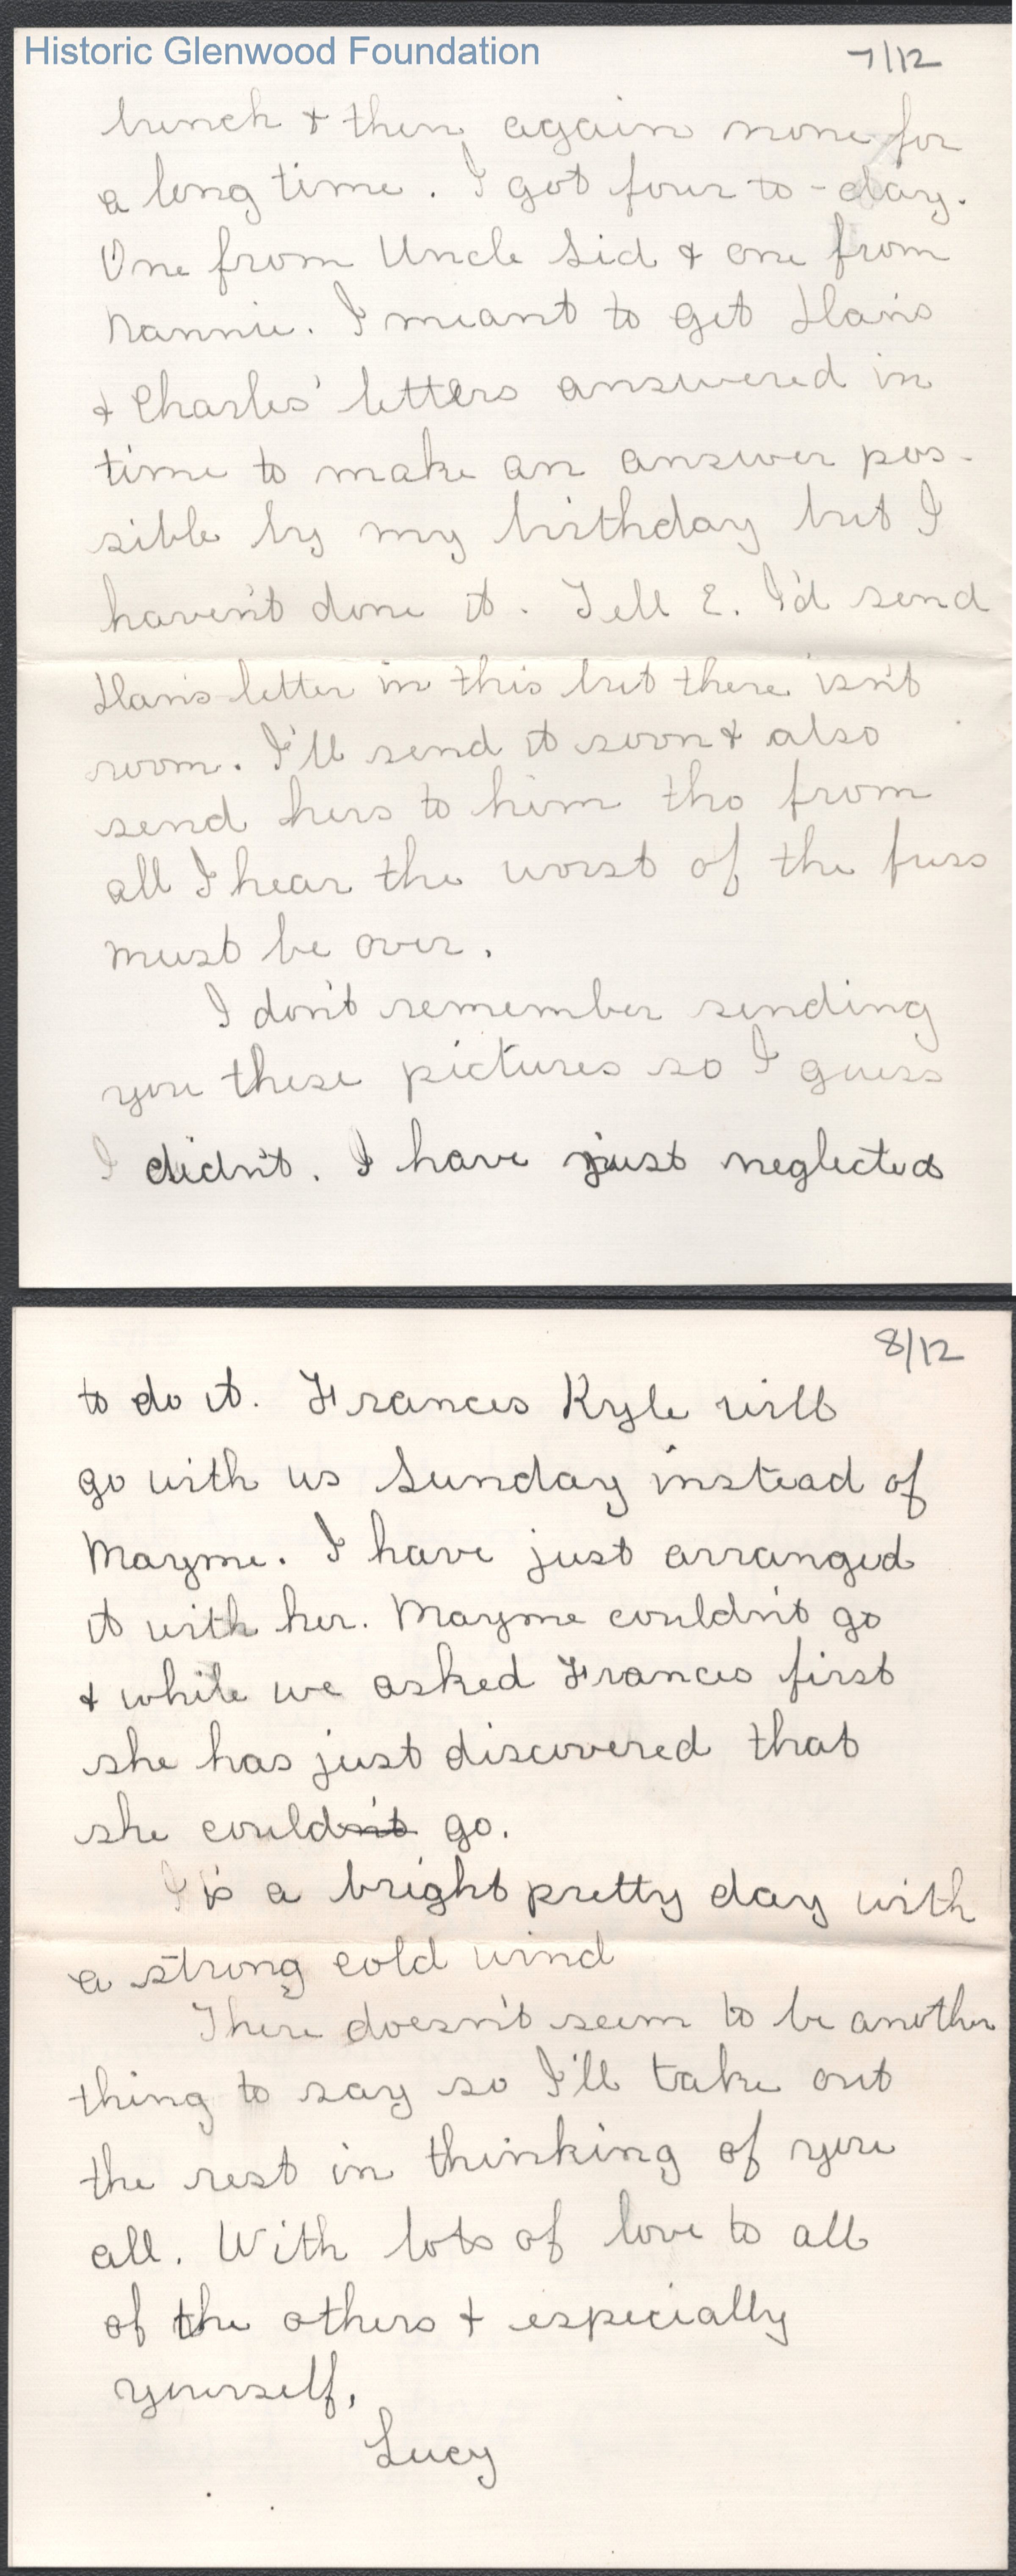 Historic Glenwood Foundation
7/12
bunch & then again none for
a long time. I got four to-day.
One from Uncle Sid & one from
Nannie. I meant to get Ilan's
& Charles' letters answered in
time to make an answer pos-
sible by my birthday but I
haven't done it. Tell E. I'd send
Ilan's letter in this but there isn't
room. I'll send it soon & also
send hers to him tho from
all I hear the worst of the fuss
must be over.
I don't remember sending
you these pictures so I guess
I didn't. I have just neglected
8/12
to do it. Frances Kyle will
go with us Sunday instead of
Mayme. I have just arranged
it with her. Mayme couldn't go
& while we asked Frances first
she has just discovered that
she couldn't go.
I is a bright pretty day with
a strong cold wind
There doesn't seem to be another
thing to say so I'll take out
the rest in thinking of you
all. With lots of love to all
of the others & especially
yourself,
Lucy